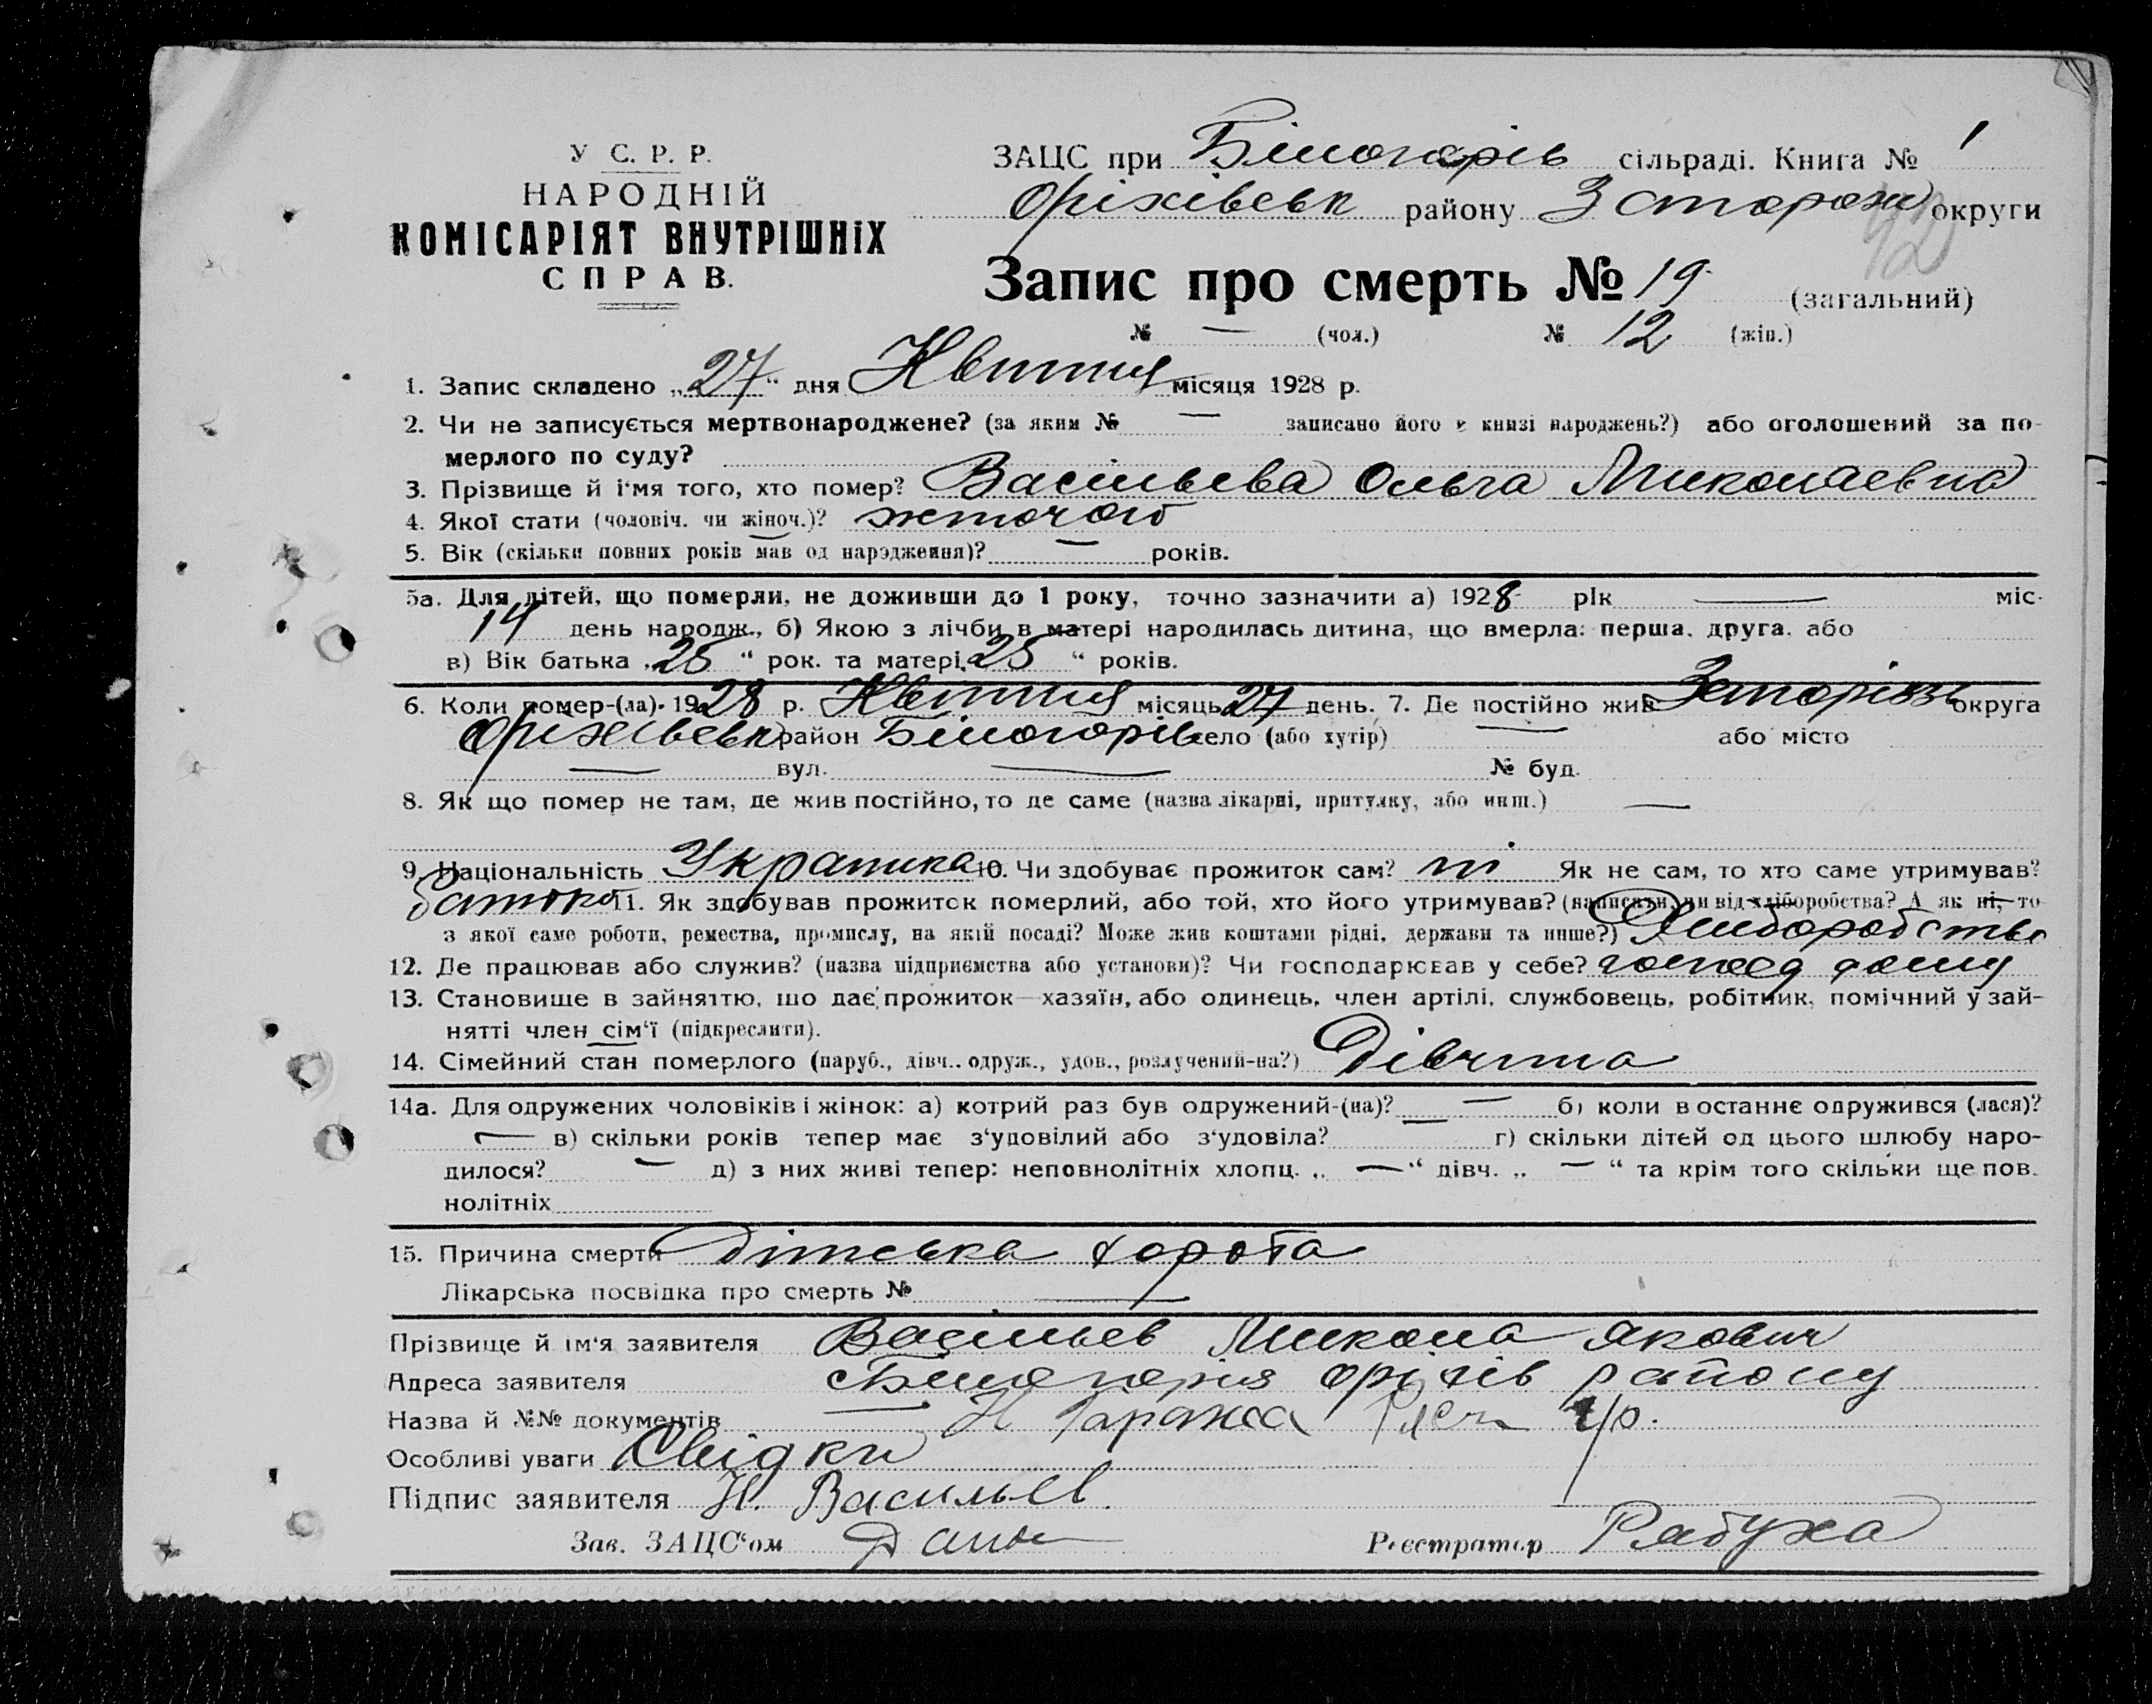 У С. Р. Р.
НАРОДНІЙ
КОМІСАРІЯТ ВНУТРІШНІХ
СПРАВ.
ЗАЦС при Білогорів сільраді. Книга № 1
Оріхівськ району Запорож округи
42
Запис про смерть № 19 (загальний)
№ — (чол.) № 12 (жін.)
1. Запис складено „27“ дня Квітня місяця 1928 р.
2. Чи не записується мертвонароджене? (за яким № — записано його в книзі народжень?) або оголошений за по-
мерлого по суду?
3. Прізвище й ім'я того, хто помер? Васильєва Ольга Миколаевна
4. Якої стати (чоловіч. чи жіноч.)? жіночої
5. Вік (скільки повних років мав од народження)? — років.
5а. Для дітей, що померли, не доживши до 1 року, точно зазначити а) 1928 рік — міс.
14 день народж., б) Якою з лічби в матері народилась дитина, що вмерла: перша, друга, або
в) Вік батька „25“ рок. та матері „25“ років.
6. Коли помер-(ла). 1928 р. Квітня місяць 27 день. 7. Де постійно жив Запоріззь округа
Оріхівськ район Білогорів село (або хутір) — або місто
— вул. — № буд.
8. Як що помер не там, де жив постійно, то де саме (назва лікарні, притулку, або инш.) —
9. Національність Украінка 10. Чи здобуває прожиток сам? ні Як не сам, то хто саме утримував?
батько 11. Як здобував прожиток померлий, або той, хто його утримував? (написати, чи від хліборобства? А як ні, то
з якої саме роботи, ремества, промислу, на якій посаді? Може жив коштами рідні, держави та инше?) Хліборобство
12. Де працював або служив? (назва підприємства або установи)? Чи господарював у себе? господ дому
13. Становище в зайняттю, що дає прожиток—хазяїн, або одинець, член артілі, службовець, робітник, помічний у зай-
нятті член сім'ї (підкреслити).
14. Сімейний стан померлого (паруб., дівч., одруж., удов., розлучений-на?) Дівчина
14а. Для одружених чоловіків і жінок: а) котрий раз був одружений-(на)? — б) коли в останнє одружився (лася)?
— в) скільки років тепер має з'удовілий або з'удовіла? — г) скільки дітей од цього шлюбу наро-
дилося? — д) з них живі тепер: неповнолітніх хлопц. „—“ дівч. „—“ та крім того скільки ще пов.
нолітніх
15. Причина смерти Дитська хороба
Лікарська посвідка про смерть № —
Прізвище й ім'я заявителя Васильєв Микола Якович
Адреса заявителя с Білогорія Оріхів району
Назва й №№ документів —
Особливі уваги Свідки
Підпис заявителя Н. Васильев.
Зав. ЗАЦС'ом
Реєстратор Рябуха